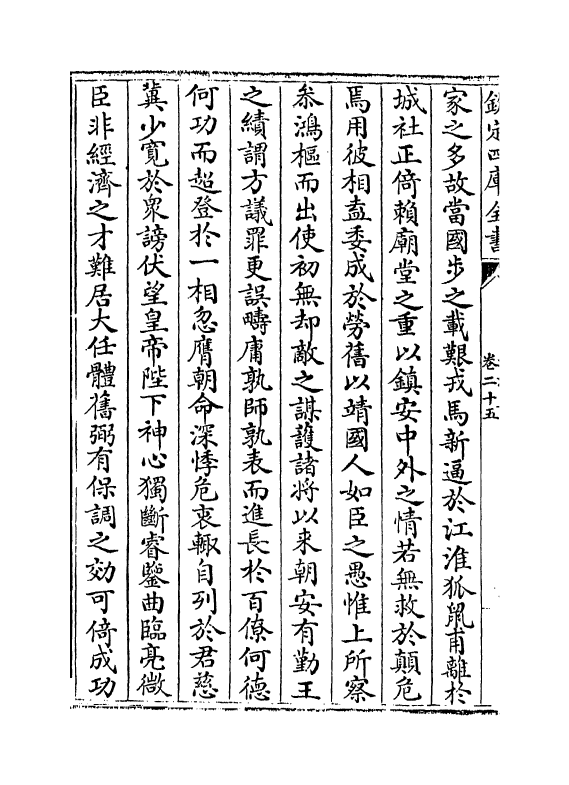 欽定四庫全書
卷二十五
家之多故當國步之載艱戎馬新逼於江淮狐鼠甫離於
城社正倚賴廟堂之重以鎮安中外之情若無救於顛危
焉用彼相盍委成於勞舊以靖國人如臣之愚惟上所察
叅鴻樞而出使初無却敵之謀護諸將以来朝安有勤王
之績謂方議罪更誤疇庸孰師孰表而進長於百僚何德
何功而超登於一相忽膺朝命深悸危衷輙自列於君慈
冀少寛於衆謗伏望皇帝陛下神心獨斷睿鑒曲臨亮微
臣非經濟之才難居大任體舊弼有保調之效可倚成功